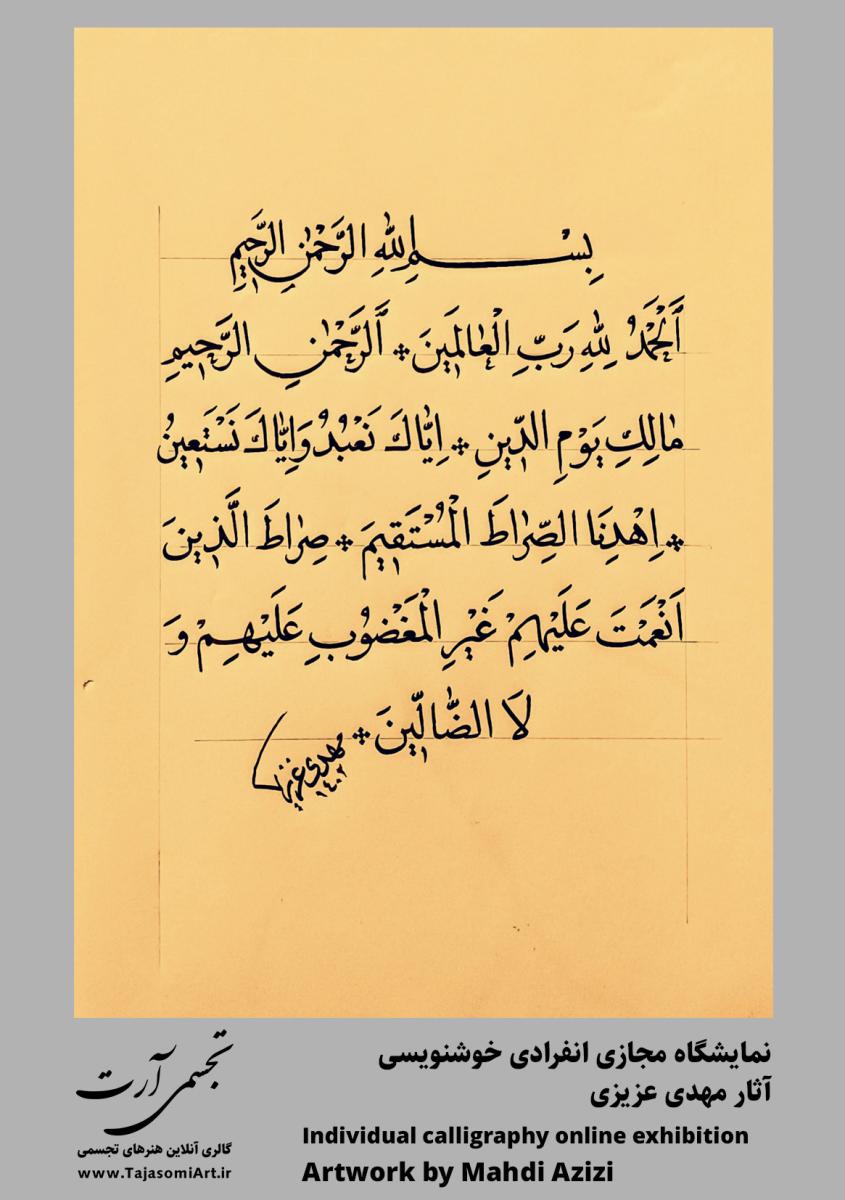 بِسْمِ اللهِ الرَّحْمٰنِ الرَّحِیمِ
اَلْحَمْدُ لِلّٰهِ رَبِّ الْعٰالَمِینَ * اَلرَّحْمٰنِ الرَّحِیمِ
مٰالِكِ یَوْمِ الدِّینِ * اِیّٰاكَ نَعْبُدُ وَاِیّٰاكَ نَسْتَعِینُ
* اِهْدِنَا الصِّرٰاطَ الْمُسْتَقِیمَ * صِرٰاطَ الَّذِینَ
اَنْعَمْتَ عَلَیْهِمْ غَیْرِ الْمَغْضُوبِ عَلَیْهِمْ وَ
لَا الضّٰالِّینَ *
مهدی عزیزی
۱۴۰۲
نمایشگاه مجازی انفرادی خوشنویسی
آثار مهدی عزیزی
Individual calligraphy online exhibition
Artwork by Mahdi Azizi
تجسمی آرت
گالری آنلاین هنرهای تجسمی
www.TajasomiArt.ir